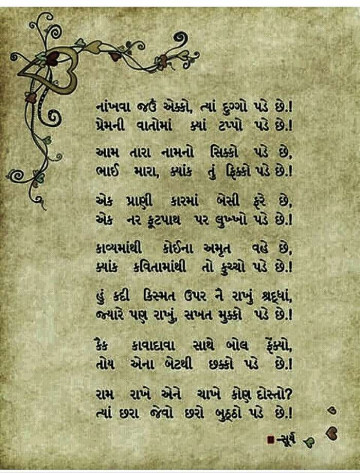 નાંખવા જઉં એક્કો, ત્યાં દુગ્ગો પડે છે.!
પ્રેમની વાતોમાં ક્યાં ટપ્પો પડે છે.!
આમ તારા નામનો સિક્કો પડે છે,
ભાઈ મારા, ક્યાંક તું ફિક્કો પડે છે.!
એક પ્રાણી કારમાં બેસી ફરે છે,
એક નર ફૂટપાથ પર લુખ્ખો પડે છે.!
કાવ્યમાંથી કોઈના અમૃત વહે છે,
ક્યાંક કવિતામાંથી તો કુચ્ચો પડે છે.!
હું કદી કિસ્મત ઉપર નૈ રાખું શ્રદ્ધાં,
જ્યારે પણ રાખું, સખત મુક્કો પડે છે.!
કૈક કાવાદાવા સાથે બોલ ફેંક્યો,
તોય એના બેટથી છક્કો પડે છે.!
રામ રાખે એને ચાખે કોણ દોસ્તો?
ત્યાં છરા જેવો છરો બુઠ્ઠો પડે છે.!
-સૂર્ય